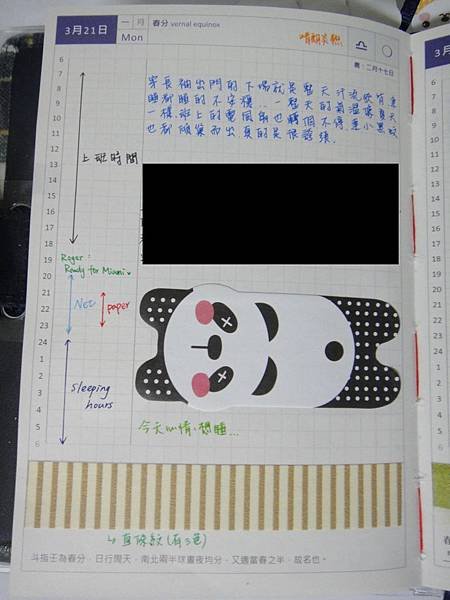 3月21日 一月 春分 vernal equinox
Mon
晴朗炎熱
農：二月十七日
穿長袖出門的下場就是整天汗流欸背連
睡都睡的不安穩...一整天的氣溫像夏天
一樣,班上的電風扇也轉個不停,連小黑蚊
也都傾巢而出真的是很誇張.
6
7
8
9
10
11
12
13
14
15
16
17
18
19
20
21
22
23
24
1
2
3
4
5
6
上班時間
Roger:
Ready for Miumi
Net
paper
Sleeping
hours
今天心情:想睡...
直條紋(有3色)
斗指壬為春分，日行周天，南北兩半球晝夜均分，又適當春之半，故名也。
3月